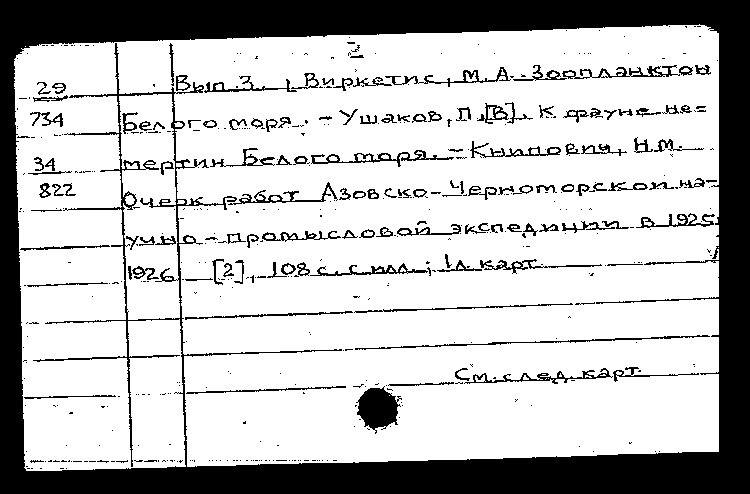 2
29 Вып. 3. , Виркетис, М.А. Зоопланктон
734 Белого моря. - Ушаков, П.[В]. К фауне не=
34 мертин Белого моря. - Книпович, Н.М.
822 Очерк работ Азовско-Черноморской на-
учно-промысловой экспедиции в 1925
1926 [2], 108 с. с илл.; 1л. карт.
См. след. карт.